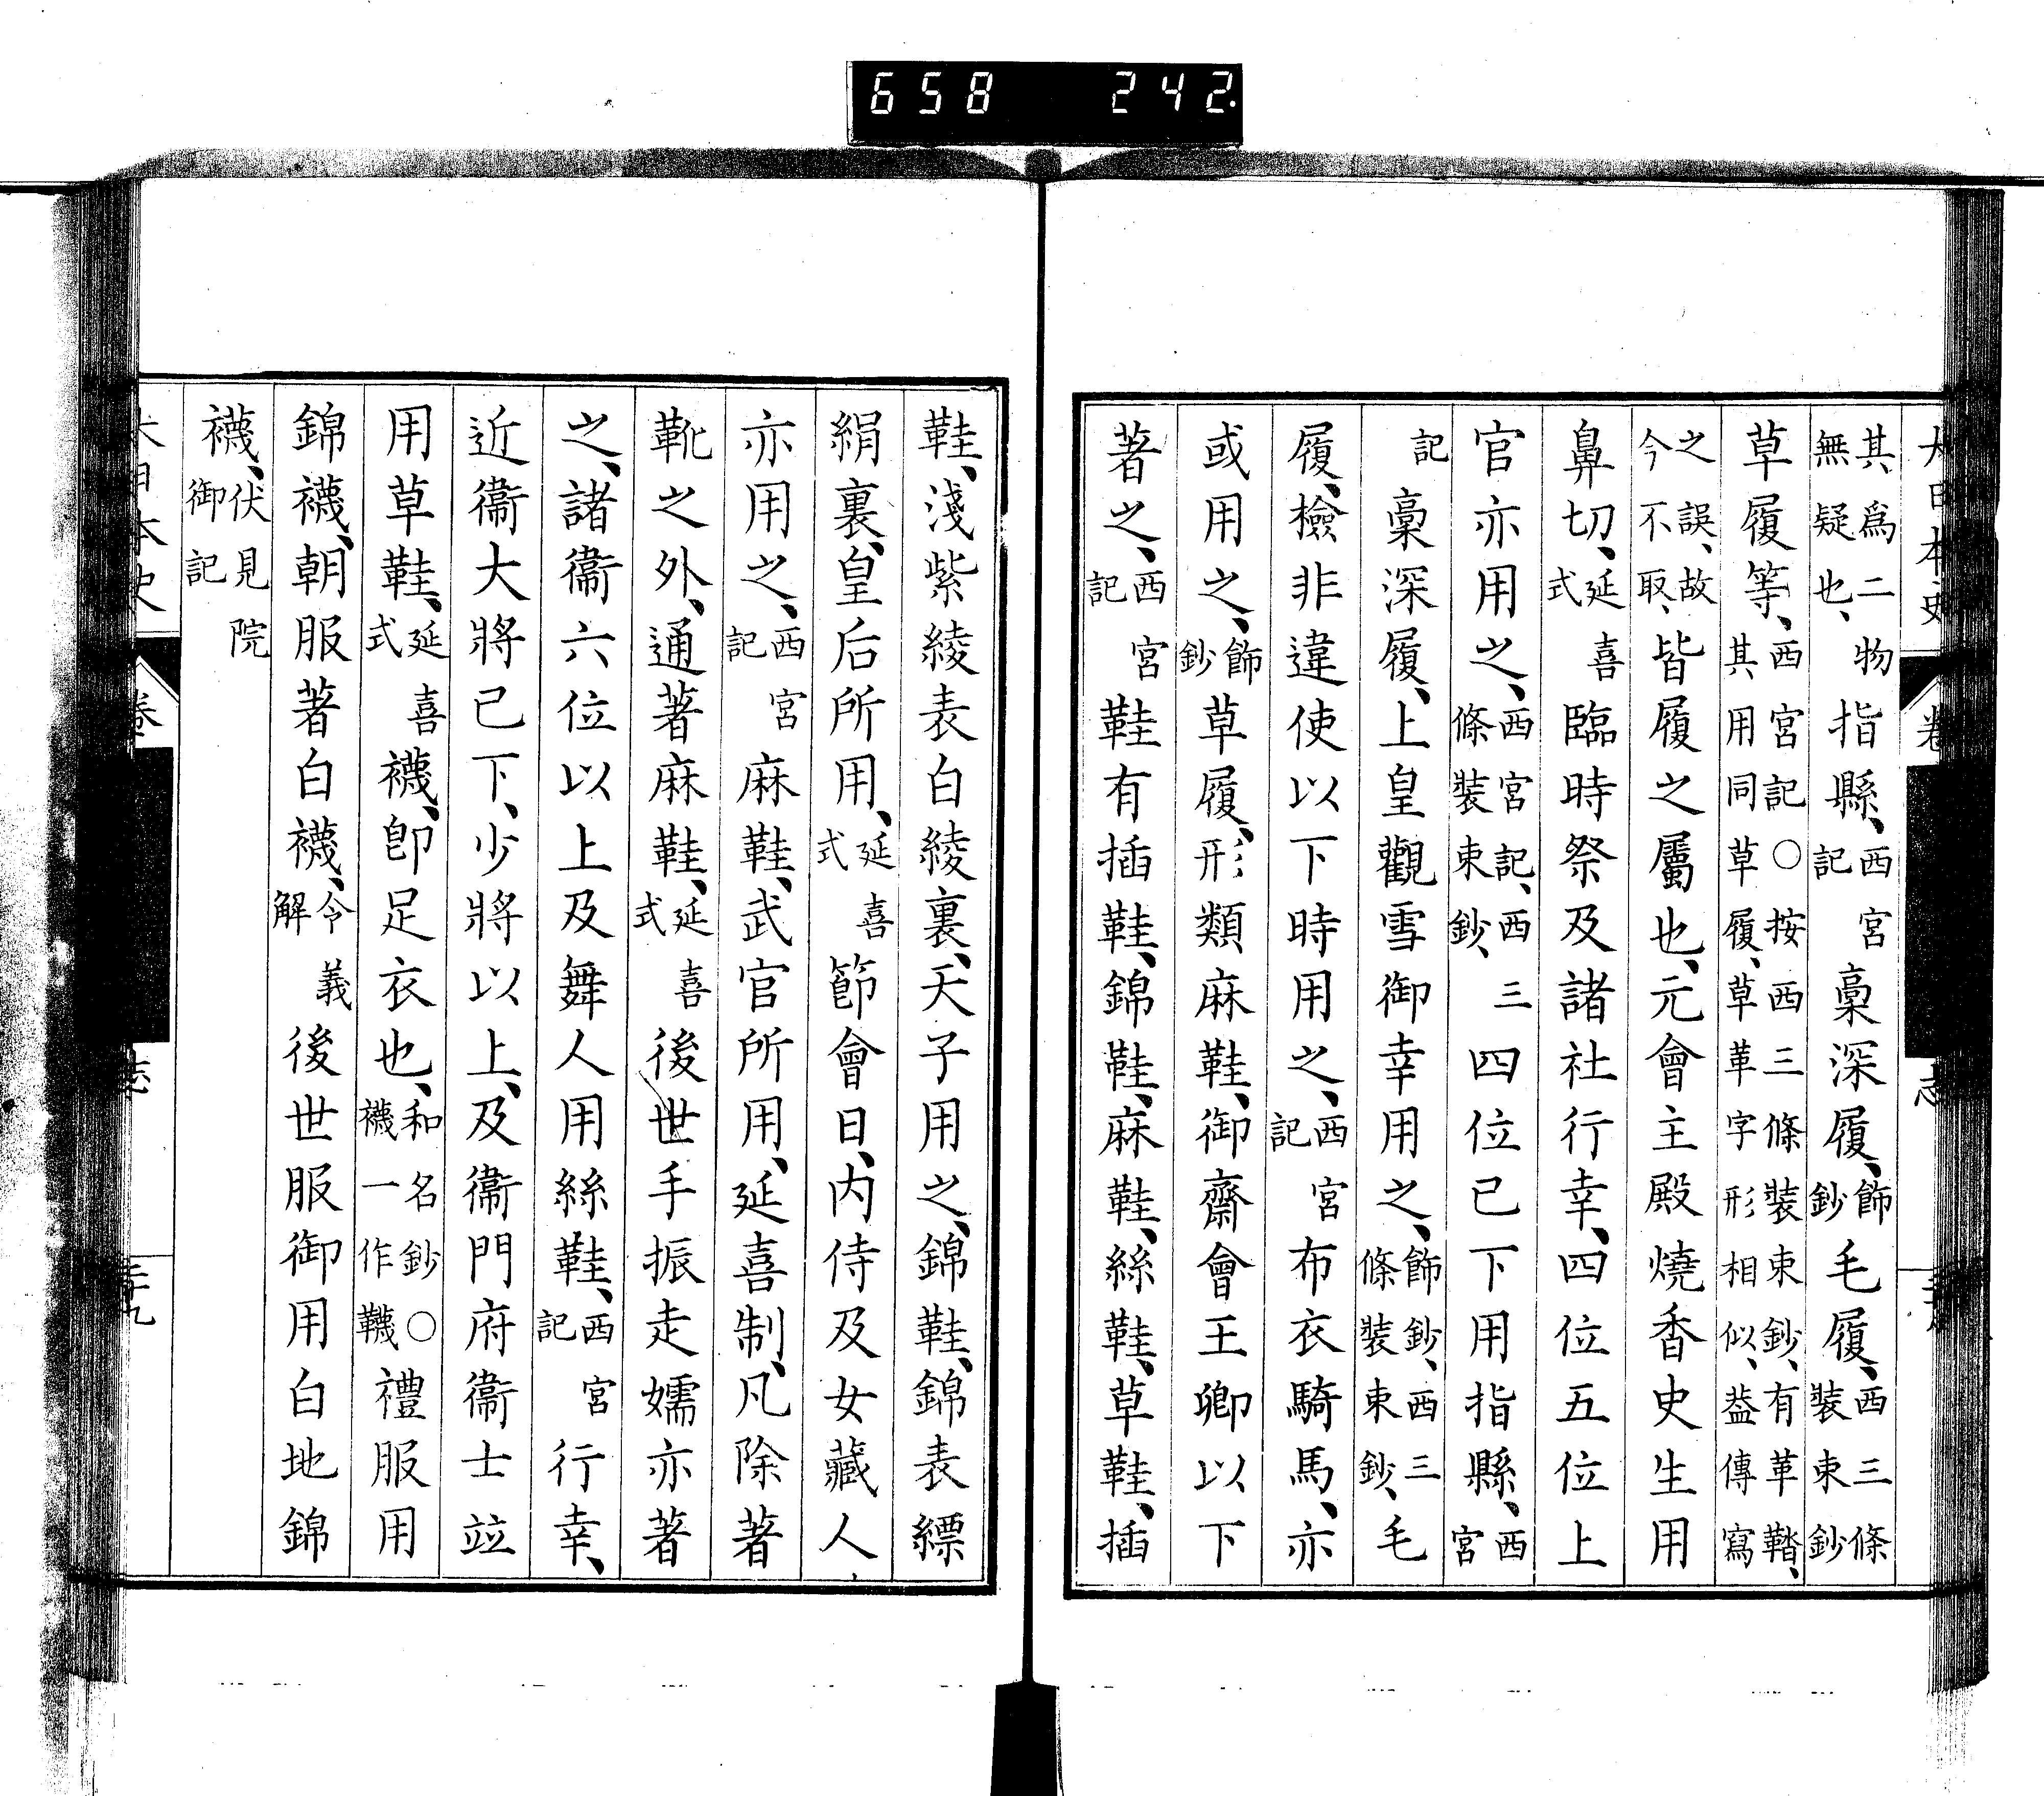 658 242.
大日本史 卷 志
其爲二物無疑也、指縣、西宮記藁深履、飾鈔毛履、西三條裝束鈔
草履等、西宮記○按西三條裝束鈔、有革鞜、其用同草履、草革字形相似、葢傳寫
之誤、故今不取、皆履之屬也、元會主殿燒香史生用
鼻切、延喜式臨時祭及諸社行幸、四位五位上
官亦用之、西宮記、西三條裝束鈔、四位已下用指縣、西宮
記藁深履、上皇觀雪御幸用之、飾鈔、西三條裝束鈔、毛
履、檢非違使以下時用之、西宮記布衣騎馬、亦
或用之、飾鈔草履、形類麻鞋、御齋會王卿以下
著之、西宮記鞋有插鞋、錦鞋、麻鞋、絲鞋、草鞋、插
鞋、淺紫綾表白綾裏、天子用之、錦鞋、錦表縹
絹裏、皇后所用、延喜式節會日、内侍及女藏人
亦用之、西宮記麻鞋、武官所用、延喜制、凡除著
靴之外、通著麻鞋、延喜式後世手振走孺亦著
之、諸衞六位以上及舞人用絲鞋、西宮記行幸、
近衞大將已下、少將以上、及衞門府衞士竝
用草鞋、延喜式襪、卽足衣也、和名鈔○襪一作韈禮服用
錦襪、朝服著白襪、令義解後世服御用白地錦
襪、伏見院御記
大日本史 卷 志 二十九